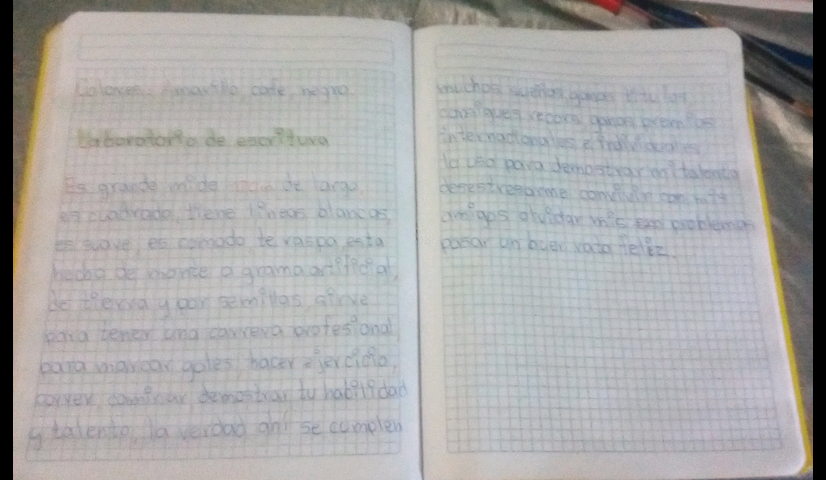 Colores: Amarillo, cafe, negro
Laboratorio de escritura
Es grande mide de largo,
es cuadrado, tiene líneas blancas,
es suave, es comodo, te raspa, esta
hecho de monte o grama artificial,
de tierra y por semillas, sirve
para tener una carrera profesional,
para marcar goles, hacer ejercicio,
correr, caminar demostrar tu habilidad
y talento, la verdad ahí se cumplen
muchos sueños, ganas titulos,
consigues records, ganas premios
internacionales e individuales
lo uso para demostrar mi talento
desestresarme convivir con mis
amigos olvidar mis problemas
pasar un buen rato feliz.